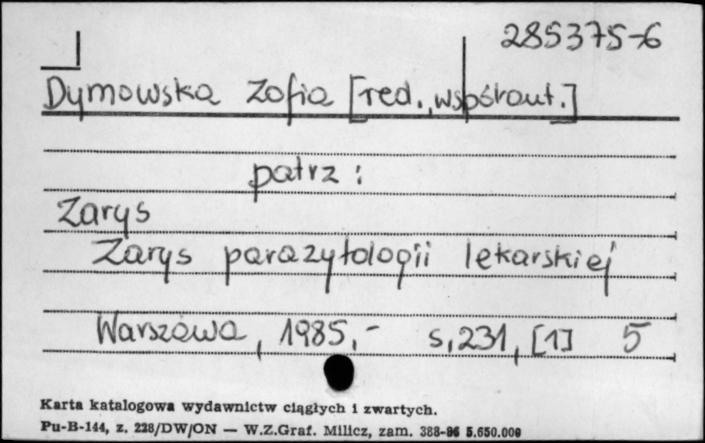 285375-6
Dymowska Zofia [red., współaut.]
patrz:
Zarys
Zarys parazytologii lekarskiej
Warszawa, 1985.- s. 231, [1] 5
Karta katalogowa wydawnictw ciągłych i zwartych.
Pu-B-144, z. 228/DW/ON — W.Z.Graf. Milicz, zam. 388-86 5.650.000